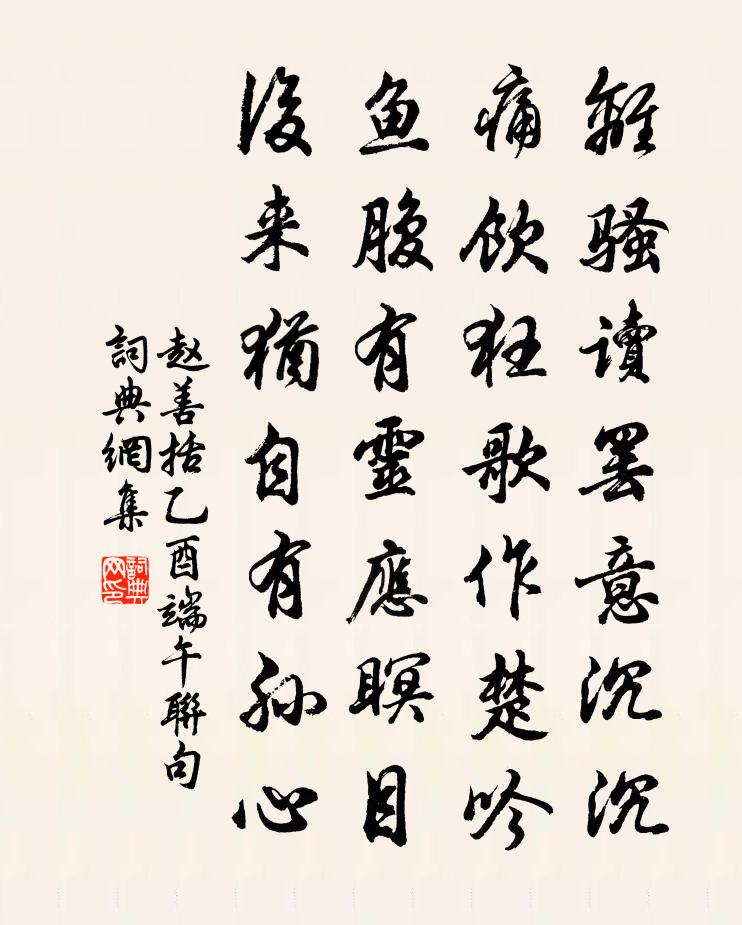 離騷讀罢意沉沉
痛飲狂歌作楚吟
鱼腹有靈應瞑目
後来猶自有孙心
赵善括乙酉端午聯句
詞典網集
詞典网印